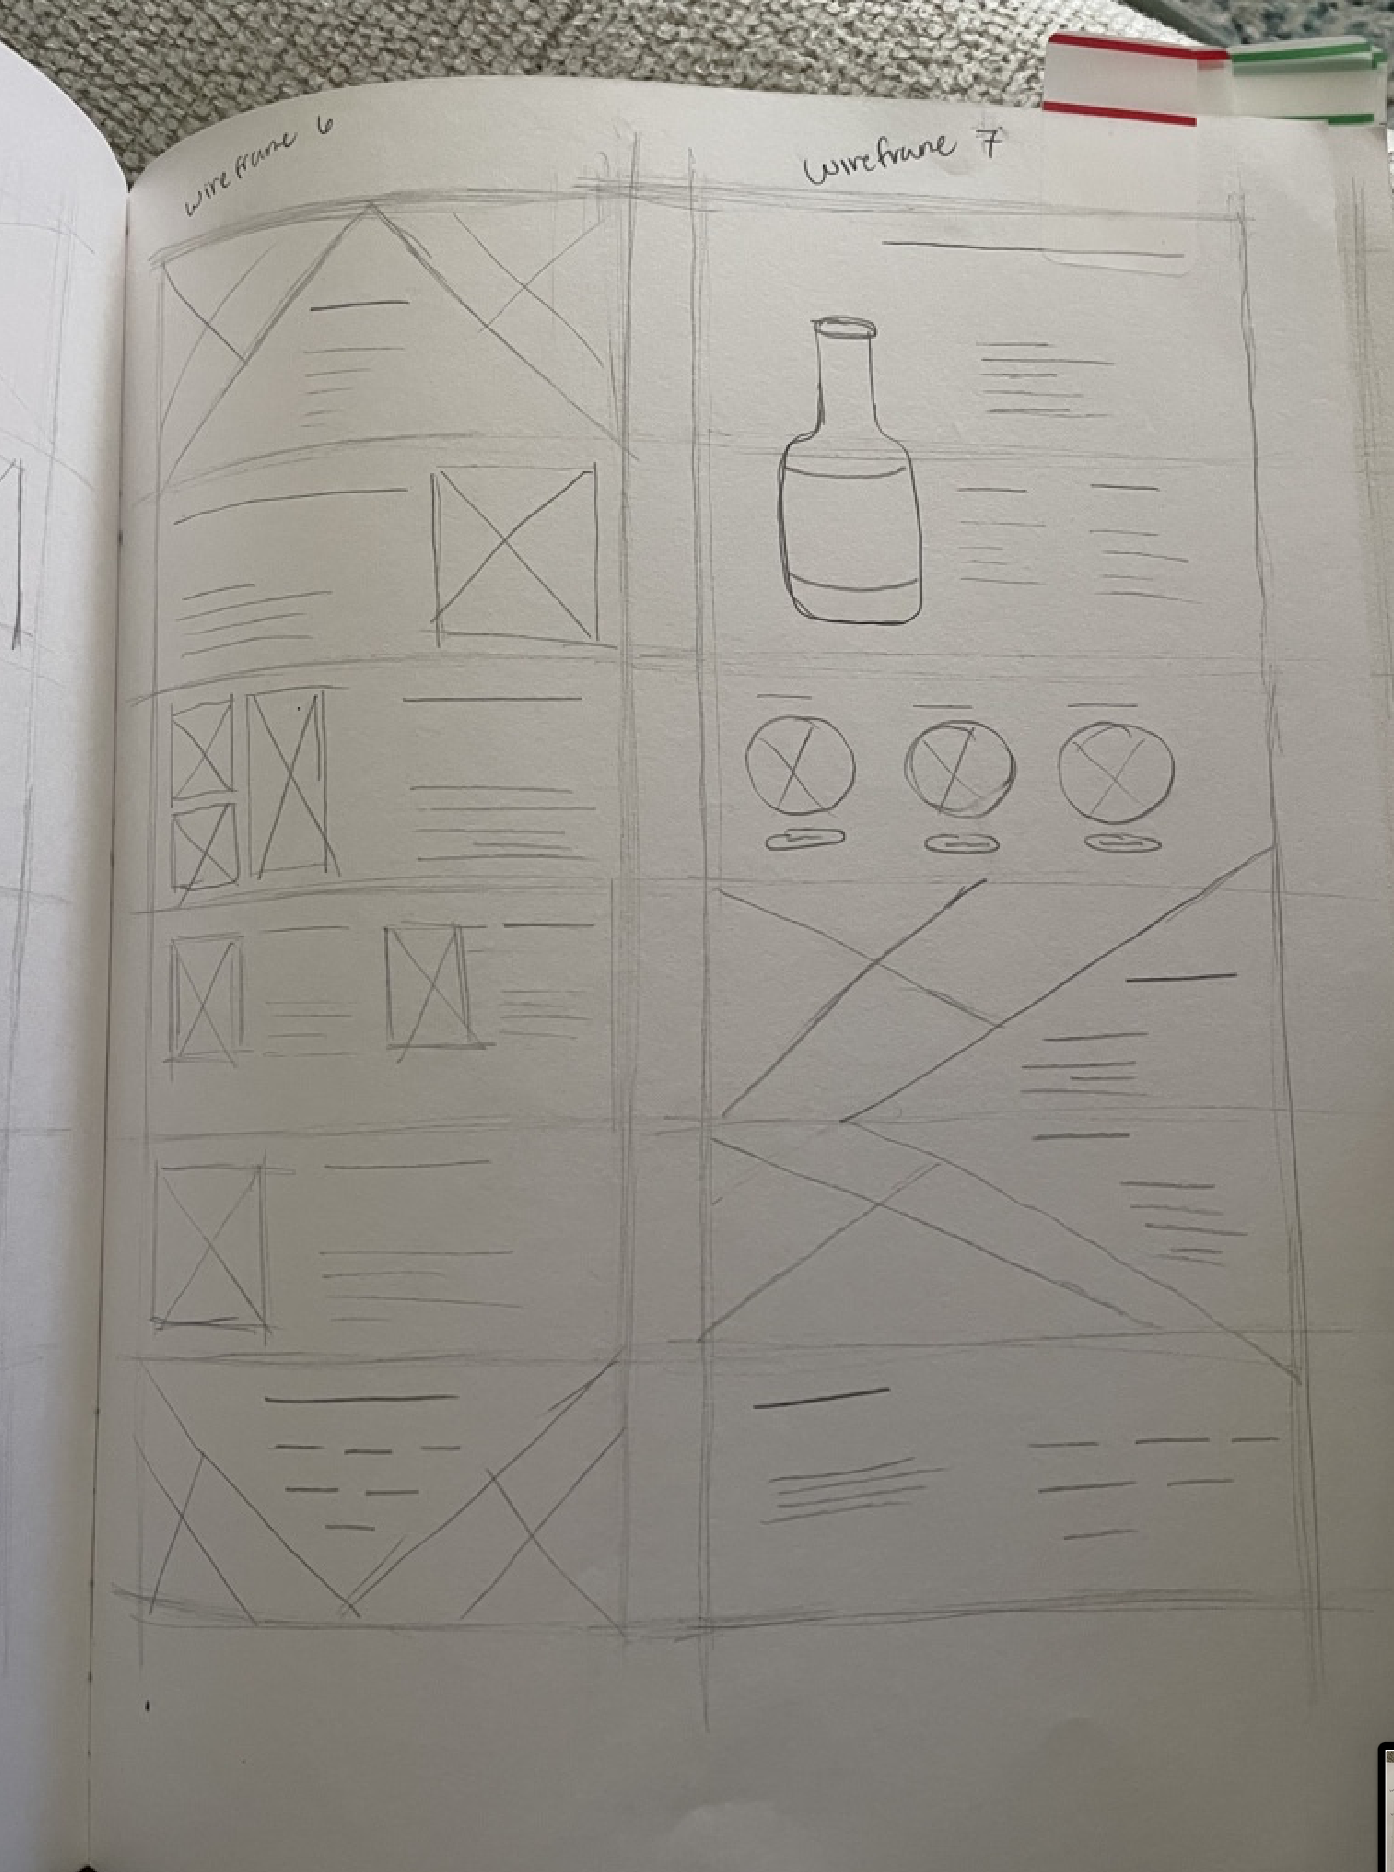 wireframe 6
wireframe 7